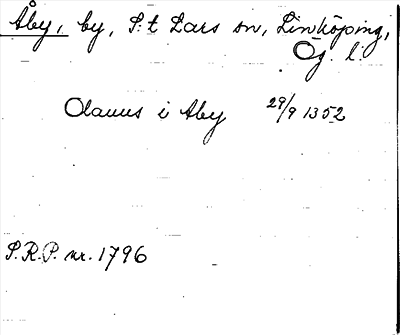 Åby, by, S:t Lars sn, Linköping,
Ög. l.
Olauus i Aby 29/9 1352
S.R.P. nr. 1796